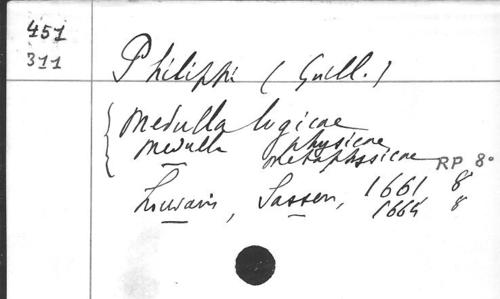 451
311
Philippi (Guill.)
Medulla logicae
Medulla physicae
metaphysicae RP 8°
Louvain, Sassen, 1661 8°
1664 8